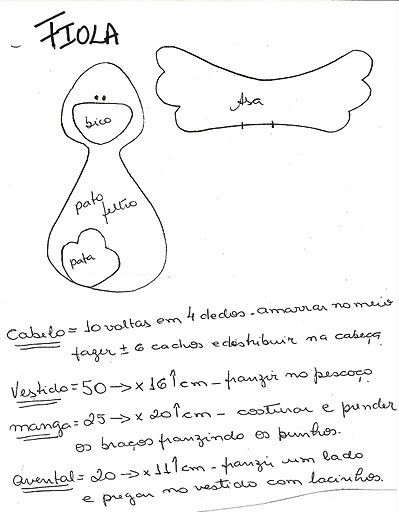 FIOLA
Asa
bico
pato
feltro
pata
Cabelo = 10 voltas em 4 dedos - amarrar no meio
fazer ± 6 cachos e distribuir na cabeça
Vestido = 50 → x 16↑ cm - franzir no pescoço
manga = 25 → x 20↑ cm - costurar e prender
os braços franzindo os punhos.
avental = 20 → x 11↑ cm - franzir um lado
e pregar no vestido com lacinhos.